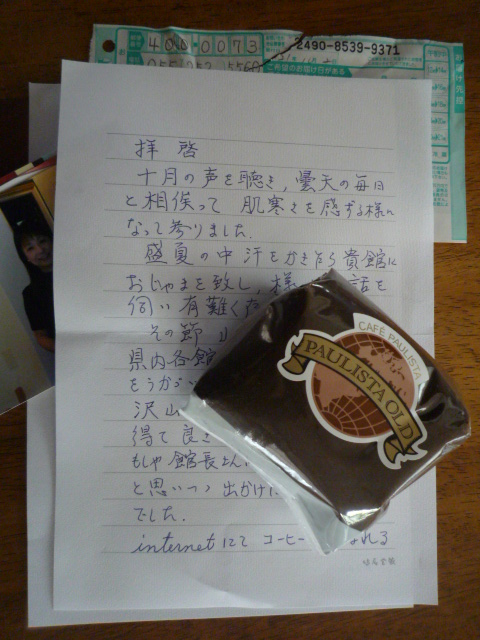 400-0073
2490-8539-9371
055 252 5560
ご希望のお届け日がある
拝啓
十月の声を聴き、曇天の毎日
と相俟って 肌寒さを感ずる様に
なって参りました。
盛夏の中 汗をかきながら貴館に
おじゃまを致し、様 話を
伺い有難く
その節 山
県内各館
をうかが
沢山
得て良き
もしや館長さんに
と思いつつ出かけた
でした。
internetにて コーヒー れる
CAFÉ PAULISTA
PAULISTA OLD